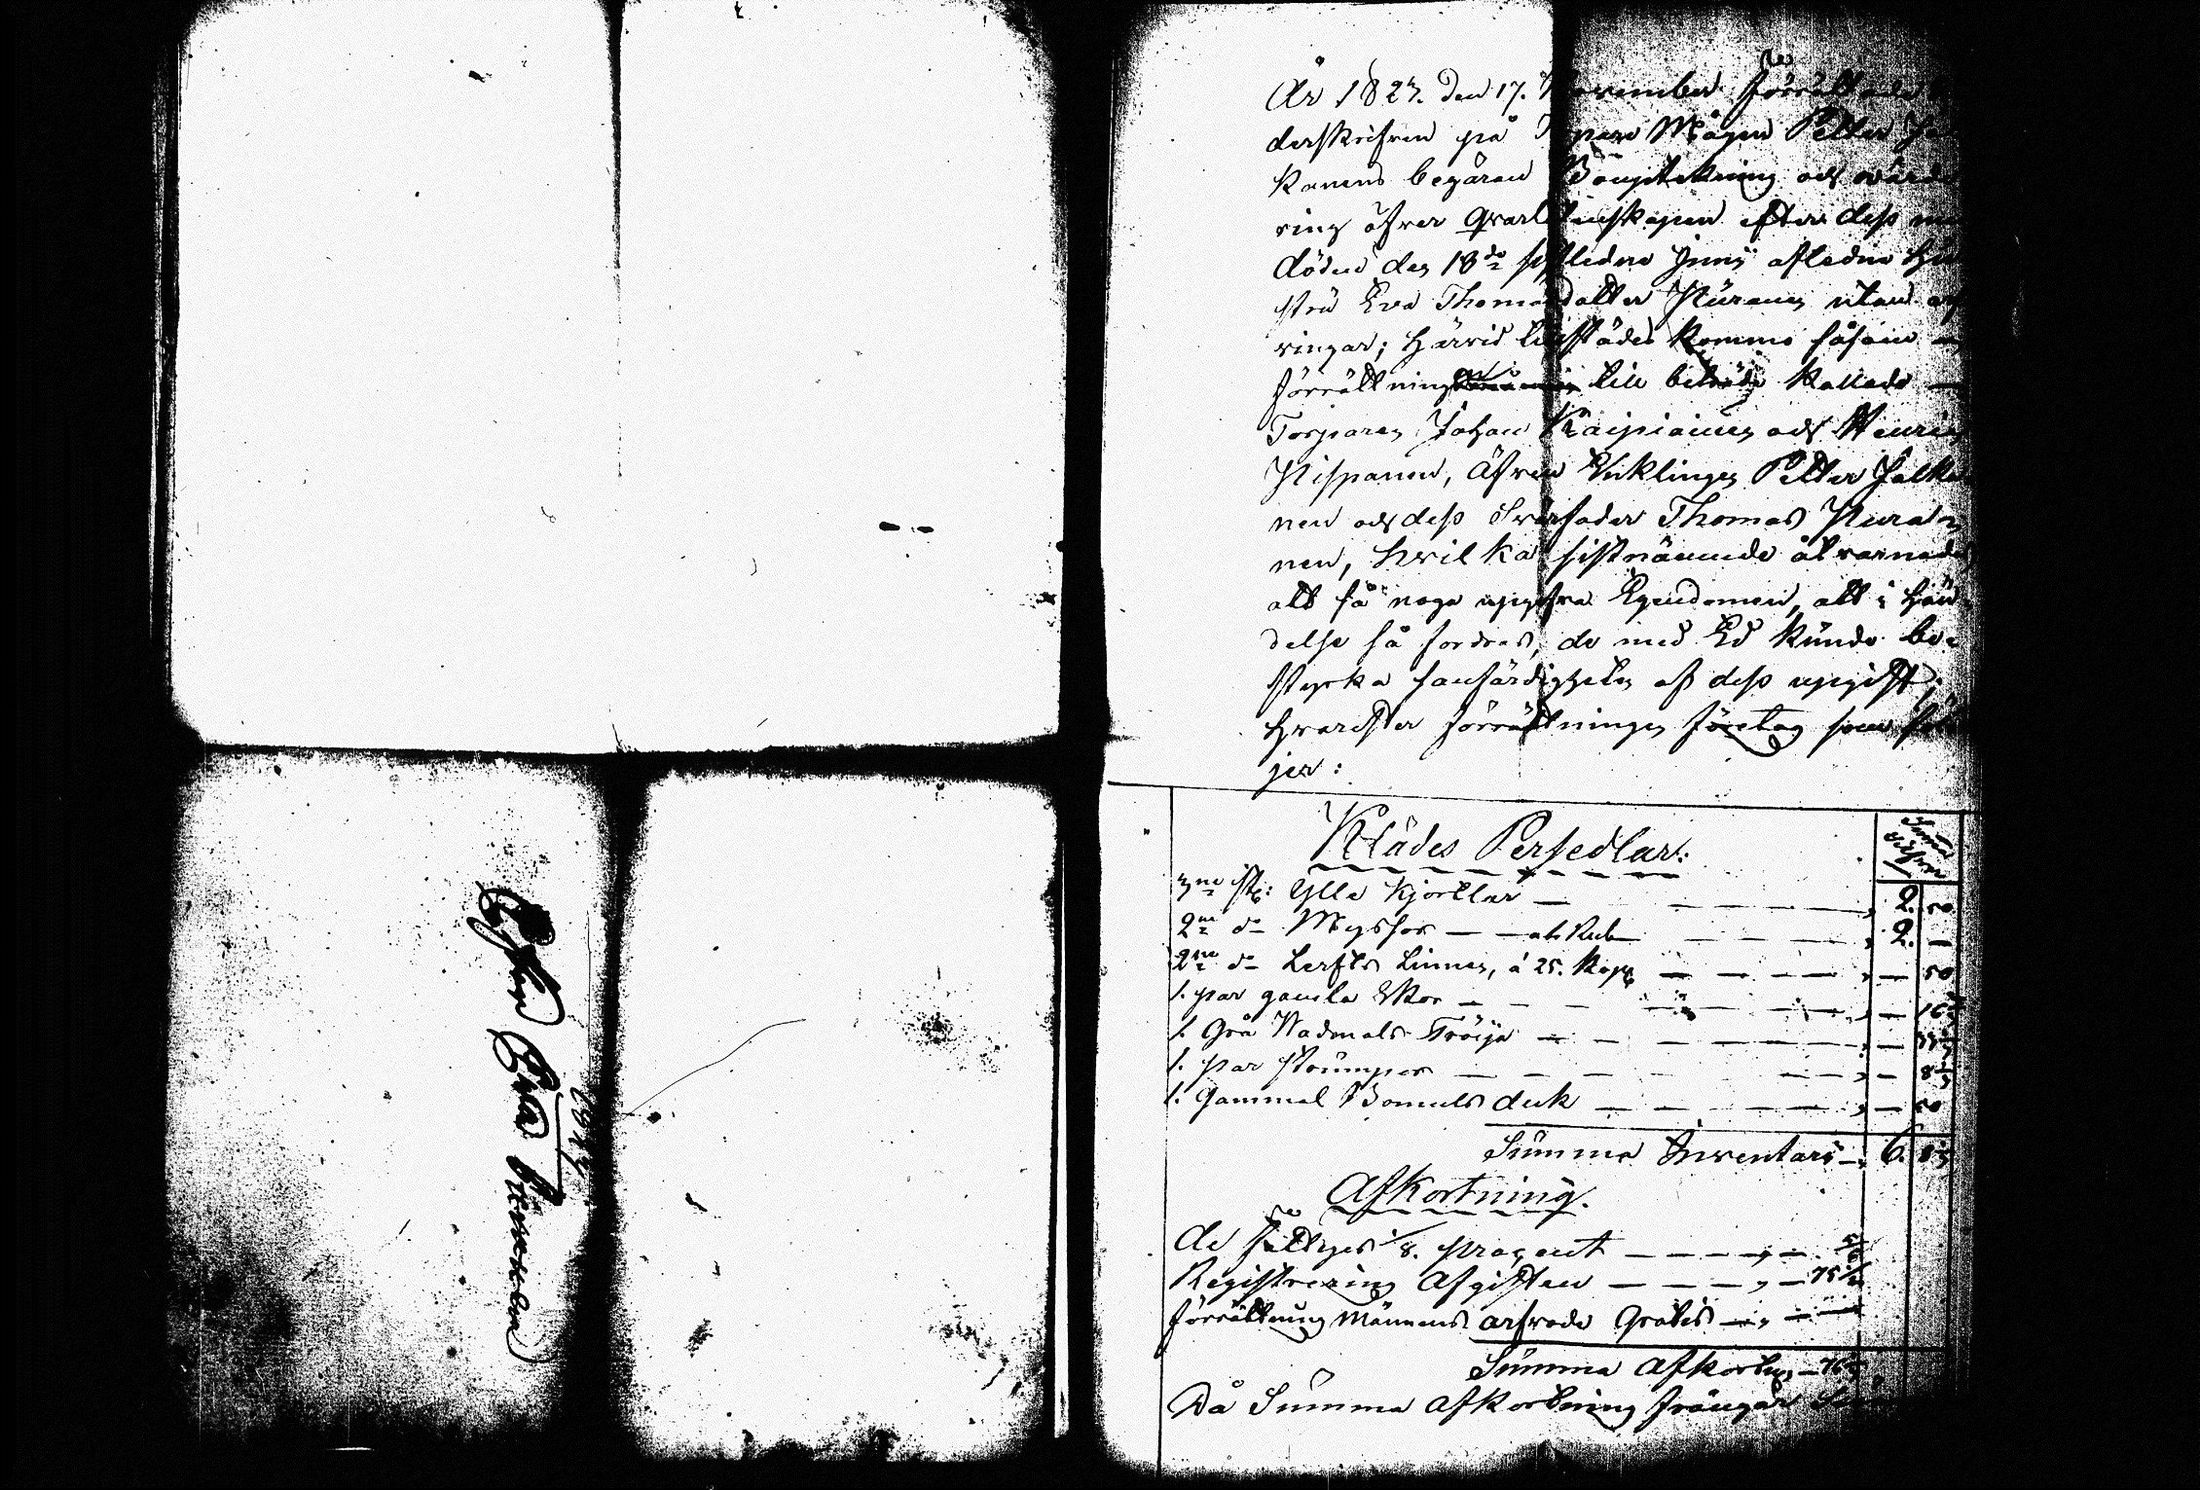 Efter Eva
1827.
År 1827. den 17. November förrättade
derskrifven på Mågen Petter Jal
kanens begäran Bouptekning och värde
ring öfver qvarlåtenskapen efter dess
döden den 18de sistledne Junij afledne Hu
stru Eva Thomasdotter Nüranen utan arf
vingar; härvid tillstädes kommo såsom
förrättnings till biträde kallade —
Torparen Johan Kaipiainen och Henric
Nisspanen, äfven Enklingen Petter Jalka
nen och dess Svärfader Thomas Nurai
nen, hvilka sistnämnde åtvarnade
att så noga uppgifva Egendomen, att i hän
delse så fordras, de med Ed kunde be-
styrka sanfärdigheten af dess uppgift,
hvarefter förrättningen företog som föl
jer:
Klädes Persedlar:
Summa
3ne st: Ylle Kjortlar — 2. 50
2ne do Myssor — — at Rub — 2. —
2ne do Lerfts Linnen, á 25. Kop — — 50
1. par gamla Skor — — 16⅔
1. Grå Wadmals Tröija — — 33⅓
1. par strumpor — — 8⅓
1. Gammal Bomuls duk — — 50
Summa Inventari — 6. 8⅓
Afkortning.
De Fattiges ⅛. procent — —
Registrering Afgiften — — 75½
Förrättning Männens arfvode Gratis — —
Summa Afkortn —
Då Summa Afkortning frångår